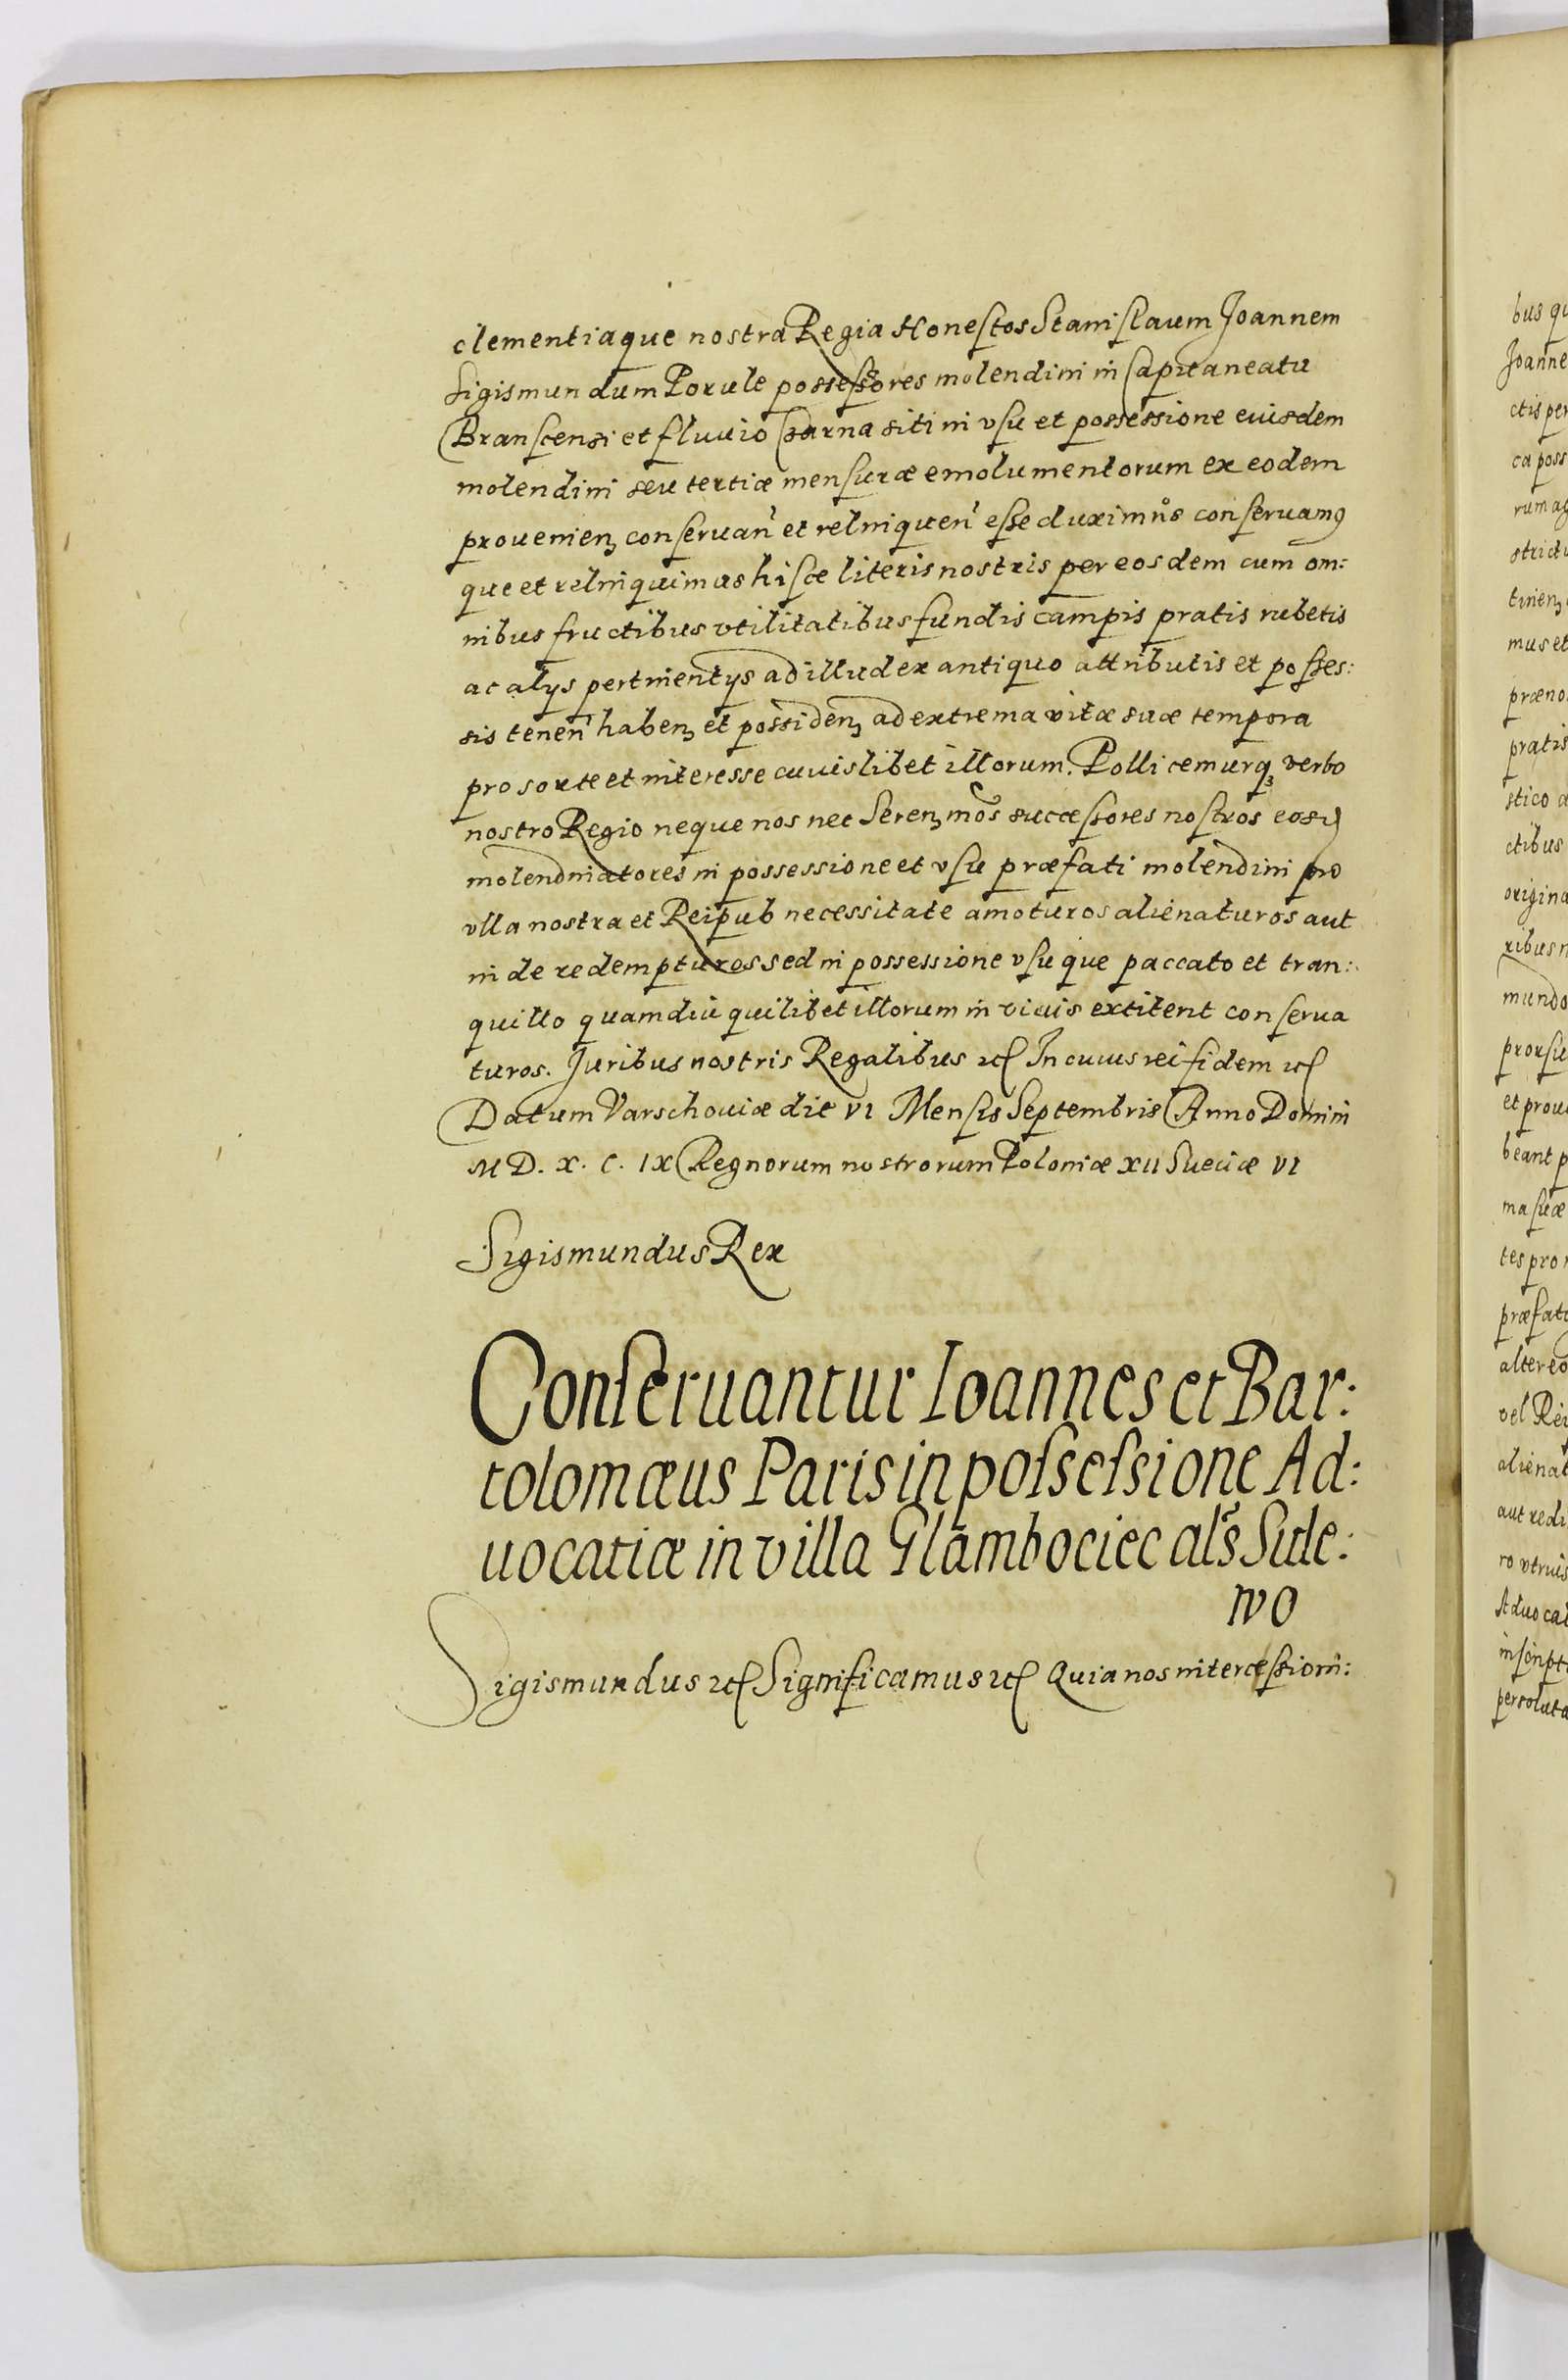 clementiaque nostra Regia Honestos Stanislaum Joannem
Sigismundum Porule possessores molendini in Capitaneatu
Branscensi et fluuio Czarna siti in vsu et possessione euisdem
molendini seu tertiæ mensuræ emolumentorum ex eodem
prouenienz conseruan̄ et relinquen̄ esse duximus conseruamus
que et relinquimus hisce literis nostris per eosdem cum om:
nibus fructibus vtilitatibus fundis campis pratis rubetis
ac alys pertinentys ad illud ex antiquo attributis et posses:
sis tenen̄ habenz et possidenz ad extrema vitæ suæ tempora
pro sorte et interesse cuiuslibet illorum. Pollicemurq3 verbo
nostro Regio neque nos nec Serenz mos successores nostros eosd
molendinatores in possessione et vsu præfati molendini pro
vlla nostra et Reipub necessitate amoturos alienaturos aut
inde redempturos sed in possessione vsuque paccato et tran:
quillo quamdiu quilibet illorum in viuis extiterit conserua
turos. Juribus nostris Regalibus etc In cuius rei fidem etc
Datum Varschouiæ die VI Mensis Septembris Anno Domini
M D. X. C. IX Regnorum nostrorum Poloniæ XII Sueciæ VI
Sigismundus Rex
Conseruantur Ioannes et Bar:
tolomæus Paris in possessione Ad:
uocatiæ in villa Glambociec als Sule:
wo
Sigismundus etc Significamus etc Quia nos intercessioni:
bus qu
Joanne
ctis per
ca poss
rum ac
strictu
tinenz
mus et
præno
pratis
stico a
ctibus
origina
ribus n
mundo
prorsu
et prou
beant p
ma suæ
tes pro
præfat
altereo
vel Rei
alienat
aut redi
ro vtrius
Aduocat
inscripti
persoluta